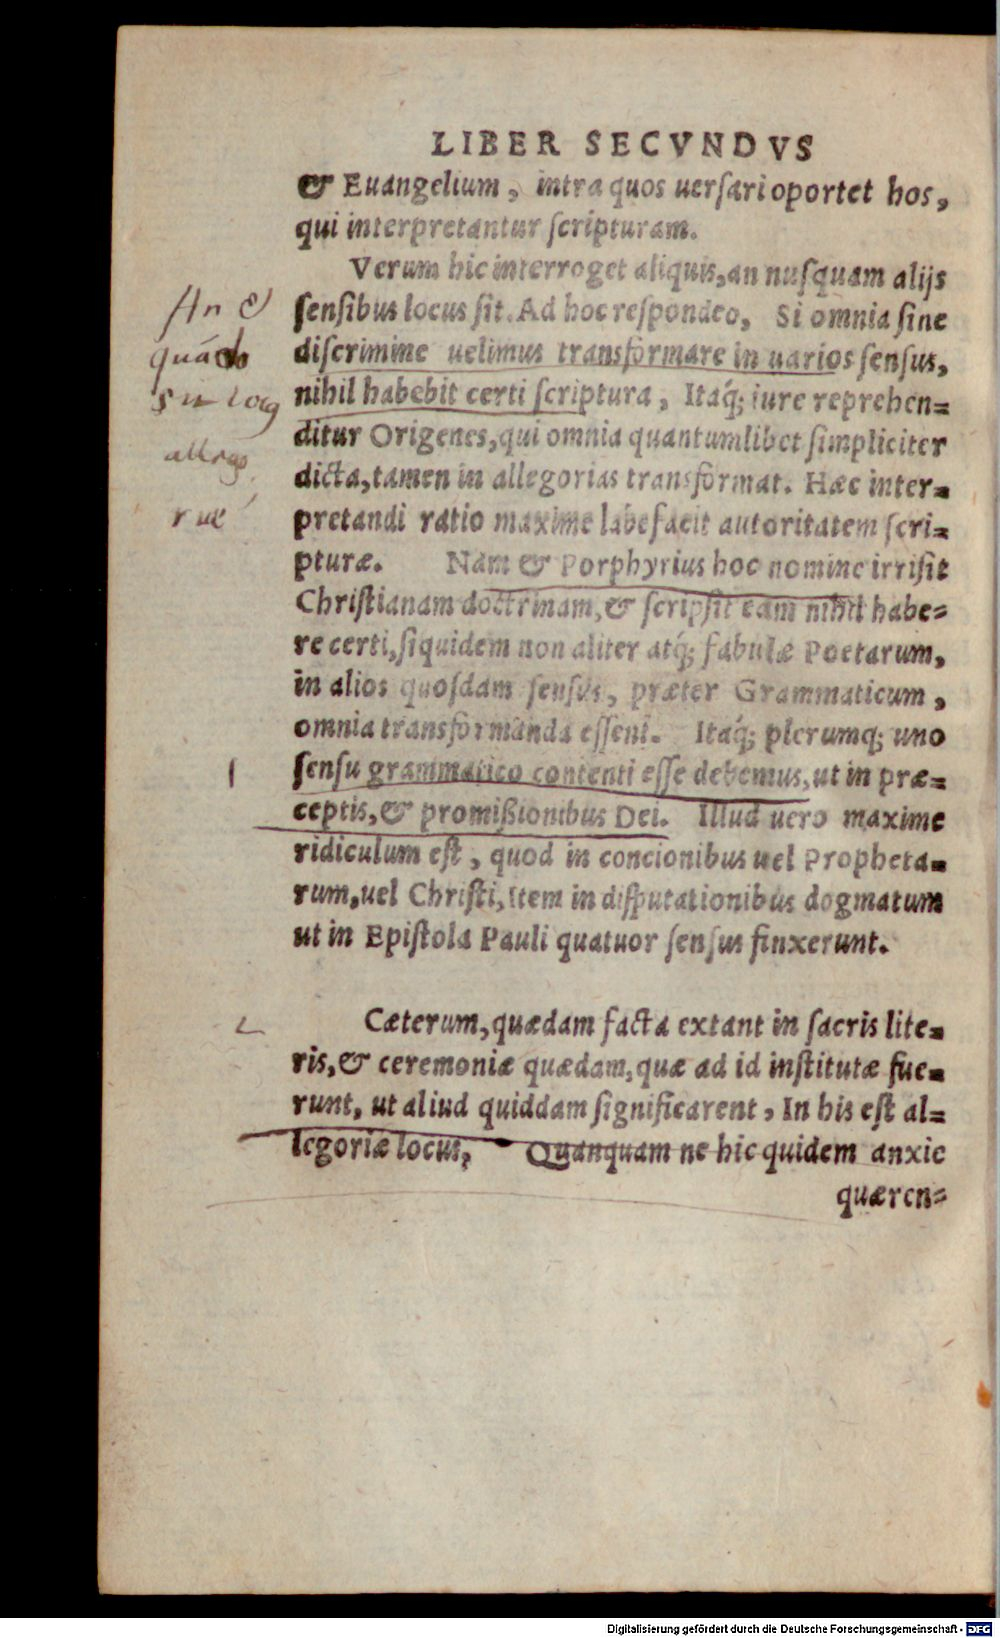 LIBER SECVNDVS
& Euangelium, intra quos uerſari oportet hos,
qui interpretantur ſcripturam.
Verum hic interroget aliquis, an nuſquam alijs
ſenſibus locus ſit. Ad hoc reſpondeo, Si omnia ſine
diſcrimine uelimus transformare in uarios ſenſus,
nihil habebit certi ſcriptura, Itaq́; iure reprehen=
ditur Origenes, qui omnia quantumlibet ſimpliciter
dicta, tamen in allegorias transformat. Hæc inter=
pretandi ratio maxime labefacit autoritatem ſcri=
pturæ. Nam & Porphyrius hoc nomine irriſit
Chriſtianam doctrinam, & ſcripſit eam nihil habe=
re certi, ſiquidem non aliter atq́; fabulæ Poetarum,
in alios quoſdam ſenſus, præter Grammaticum,
omnia transformanda eſſent. Itaq́; plerumq; uno
ſenſu grammatico contenti eſſe debemus, ut in præ=
ceptis, & promißionibus Dei. Illud uero maxime
ridiculum eſt, quod in concionibus uel Propheta=
rum, uel Chriſti, Item in diſputationibus dogmatum
ut in Epiſtola Pauli quatuor ſenſus finxerunt.
Cæterum, quædam facta extant in ſacris lite=
ris, & ceremoniæ quædam, quæ ad id inſtitutæ fue=
runt, ut aliud quiddam ſignificarent, In his eſt al=
legoriæ locus, Quanquam ne hic quidem anxie
quæren=
An &
quádo
Digitalisierung gefördert durch die Deutsche Forschungsgemeinschaft - DFG